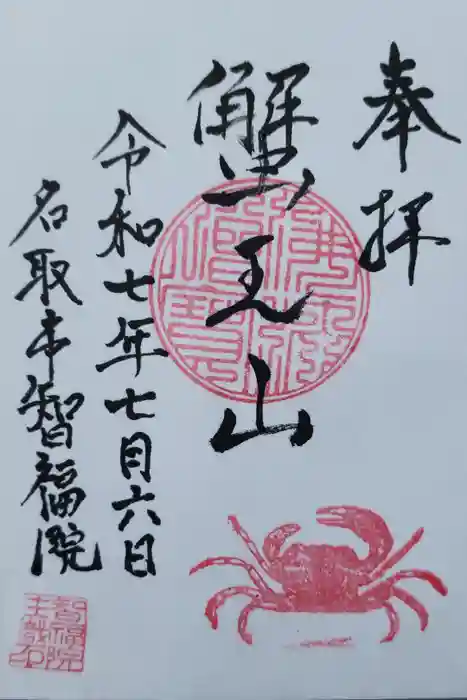 奉拝
蟹王山
令和七年七月六日
名取市智福院
佛法僧寳